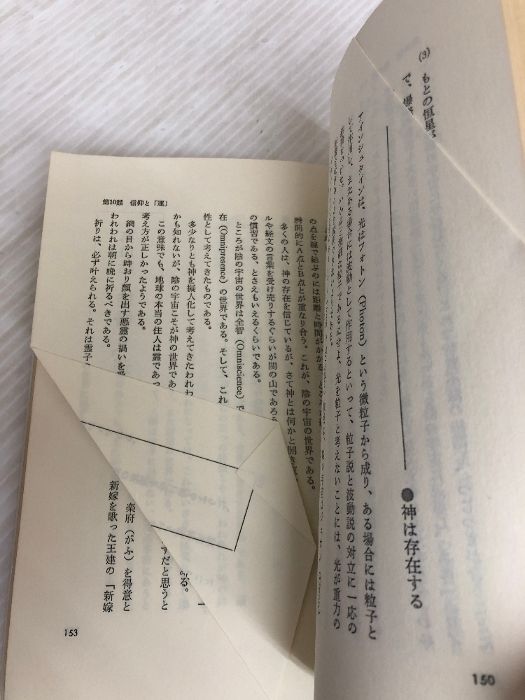 (3) もとの恒星
で、
●神は存在する
アインシュタインは、光はフォトン(Photon)という微粒子から成り、ある場合には粒子と
して作用し、またある場合には波動として作用するといって、粒子説と波動説の対立に一応の
光を粒子と考えないことには、光が重力の
150
の点を線で結ぶのには距離と時間がかかる
瞬間的にA点とB点とが重なり合う。これが、陰の宇宙の世界である。
多くの人は、神の存在を信じているが、さて神とは何かと聞
ルや経文の言葉を受け売りするぐらいが関の山であろ
の慣習である、とさえもいえるくらいである。
ところが陰の宇宙の世界は全智(Omniscience)で
在(Omnipresence)の世界である。そして、これ
性として考えてきたものである。
多少なりとも神を擬人化して考えてきたわれわ
かも知れないが、陰の宇宙こそが神の世界であ
この意味でも、地球の本当の住人は霊であっ
考え方が正しかったようである。
網の目から時おり顔を出す悪霊の禍いを
われわれは朝に晩に祈るべきである。
祈りは、必ず叶えられる。それは霊子
第10話 信仰と「運」
る。
ずだと思うと
楽府(がふ)を得意と
新嫁を歌った王建の「新嫁
153